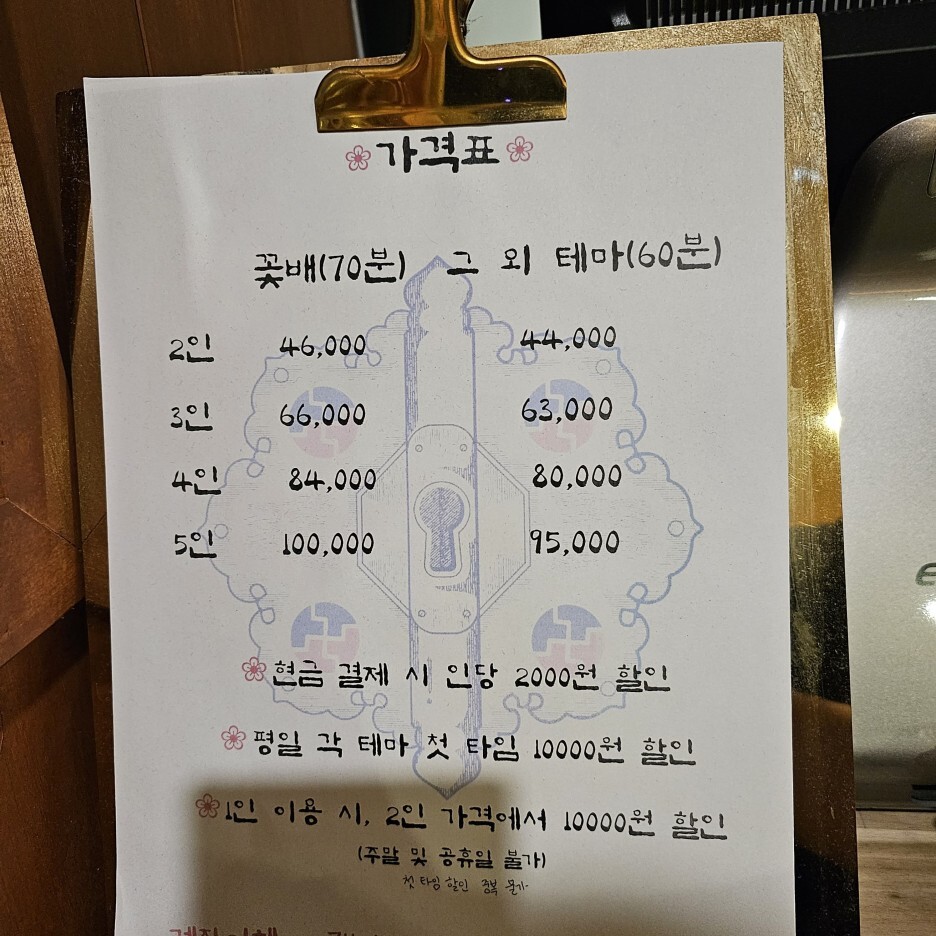 가격표
꽃배(70분) 그 외 테마(60분)
2인 46,000 44,000
3인 66,000 63,000
4인 84,000 80,000
5인 100,000 95,000
현금 결제 시 인당 2000원 할인
평일 각 테마 첫 타임 10000원 할인
1인 이용 시, 2인 가격에서 10000원 할인
(주말 및 공휴일 불가)
첫 타임 할인 중복 불가